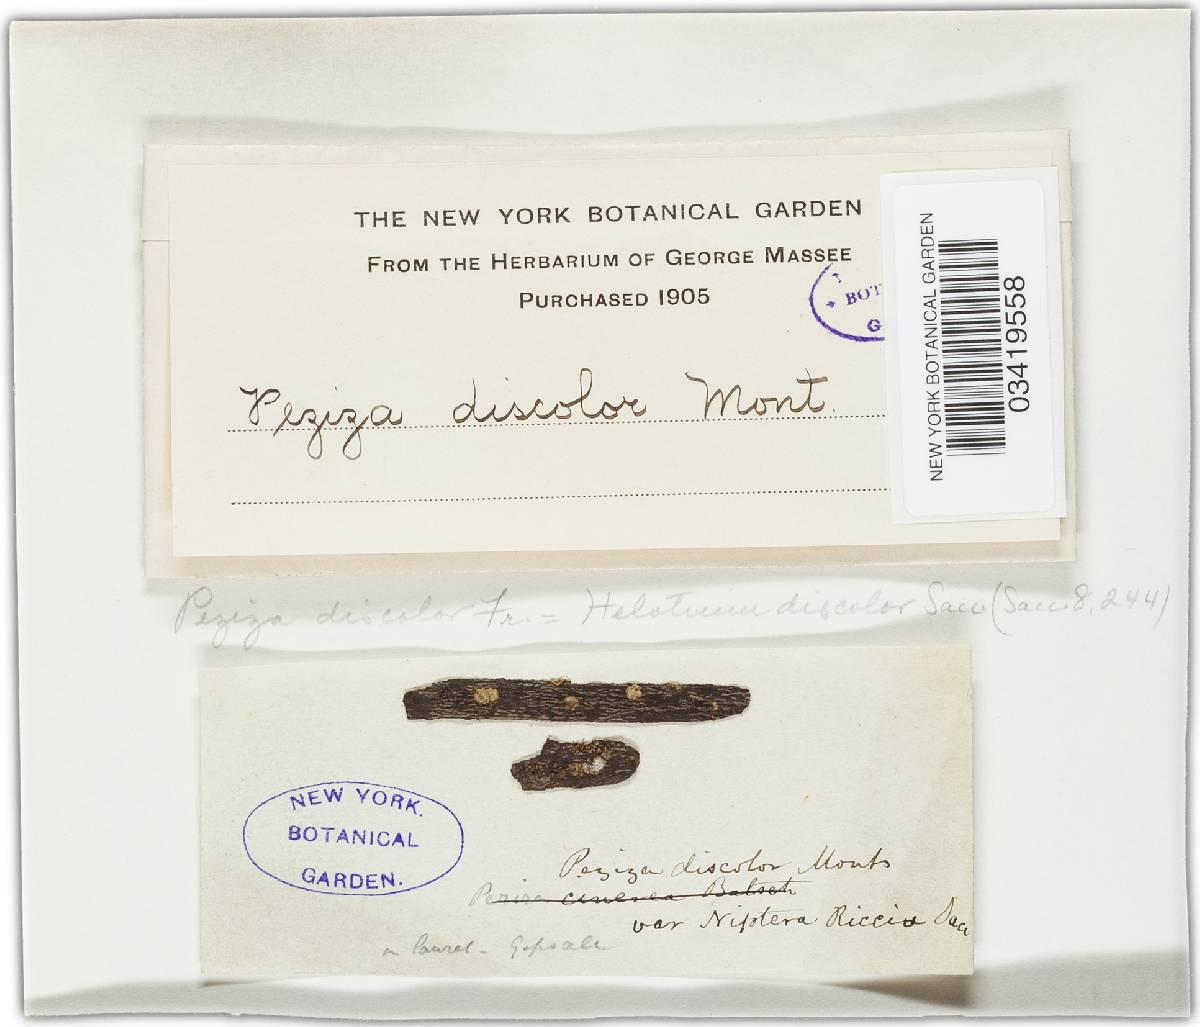 THE NEW YORK BOTANICAL GARDEN
FROM THE HERBARIUM OF GEORGE MASSEE
PURCHASED 1905
BOT
G
Peziza discolor Mont.
NEW YORK BOTANICAL GARDEN
03419558
Peziza discolor Fr. = Helotium discolor Sacc (Sacc 8, 244)
NEW YORK.
BOTANICAL
GARDEN.
Peziza discolor Mont
Peziza cinerea Batsch
var Niptera Riccia Sacc
on laurel - Gopsall